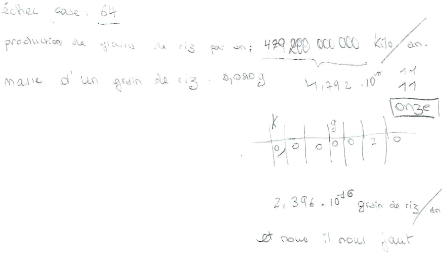 échec case : 64
production de grains de riz par an : 479 200 000 000 Kilo/an.
masse d'un grain de riz : 0,020g 4,792 . 10 11
11
onze
K g
0, 0 0 0 0 2 0
2,396 . 10^-16 grain de riz/an
et nous il nous faut